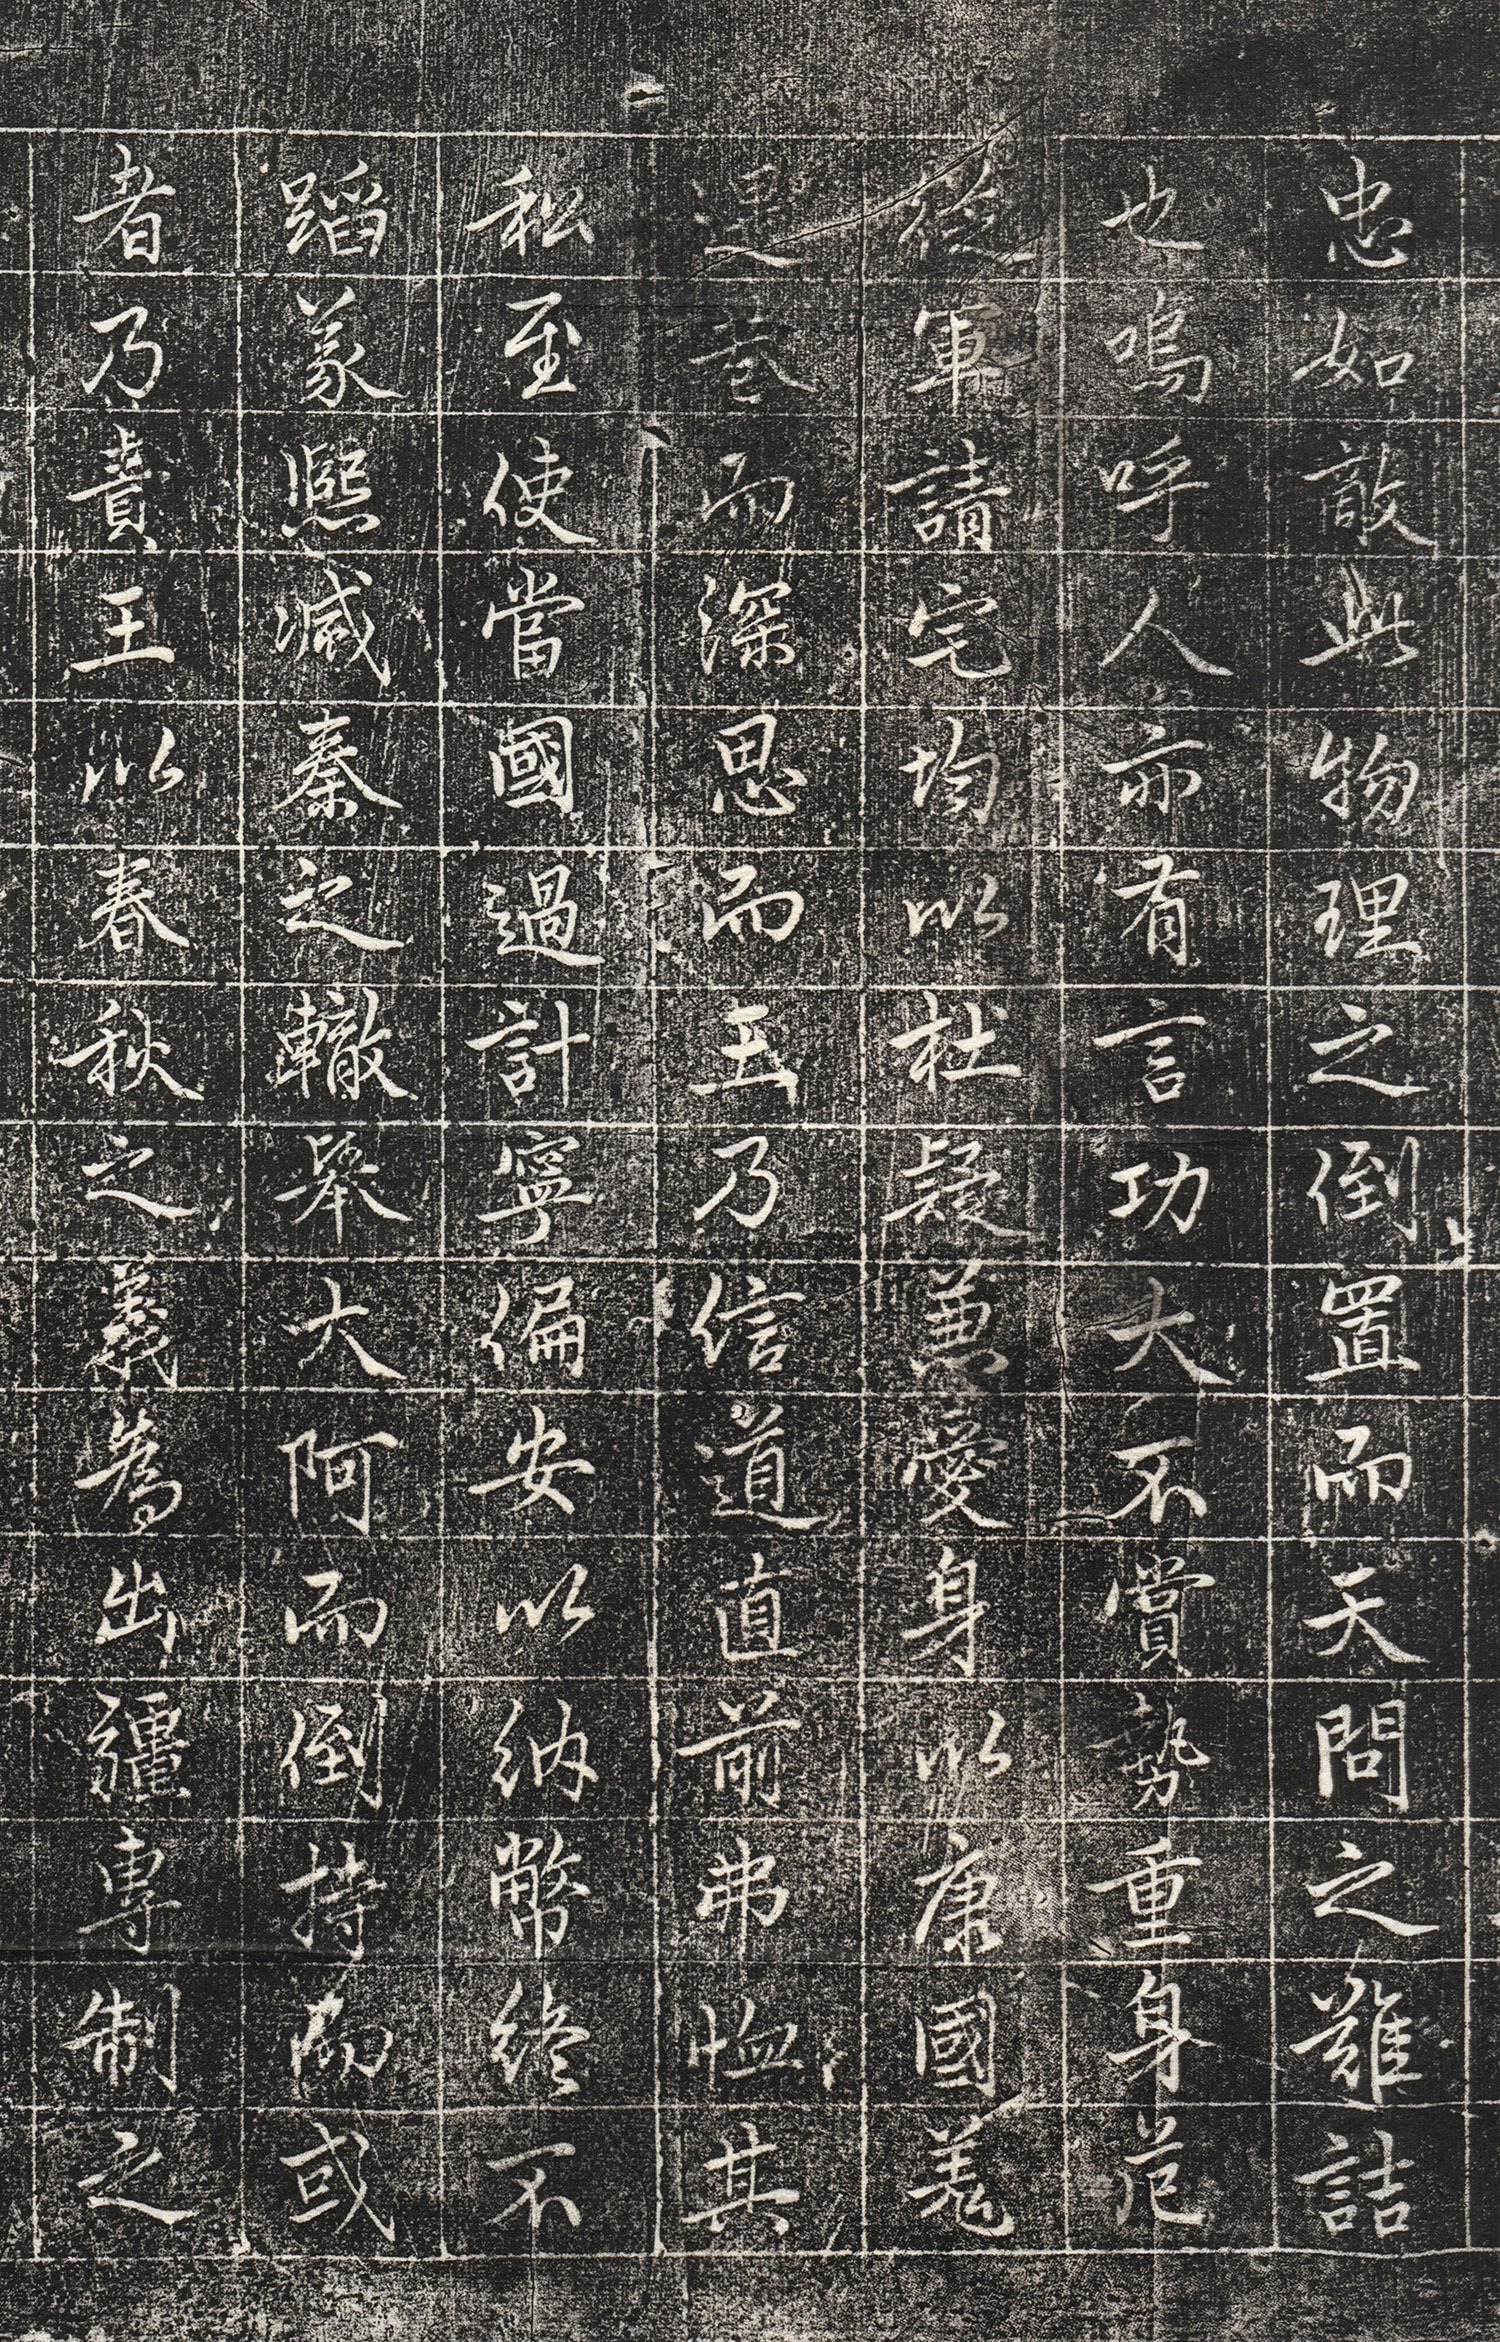 忠如敵此物理之倒置而天問之難詰
也嗚呼人亦有言功大不賞勢重身危
從軍請宅均以杜疑兼愛身以康國羗
遠志而深思而王乃信道直前弗恤其
私至使當國過計寧偏安以納幣終不
蹈蒙熙滅秦之轍舉大阿而倒持而或
者乃責王以春秋之義為出疆專制之